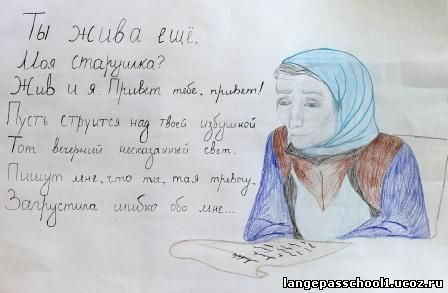 Ты жива ещё,
Моя старушка?
Жив и я. Привет тебе, привет!
Пусть струится над твоей избушкой
Тот вечерний несказанный свет.
Пишут мне, что ты, тая тревогу,
Загрустила шибко обо мне...
langepasschool1.ucoz.ru